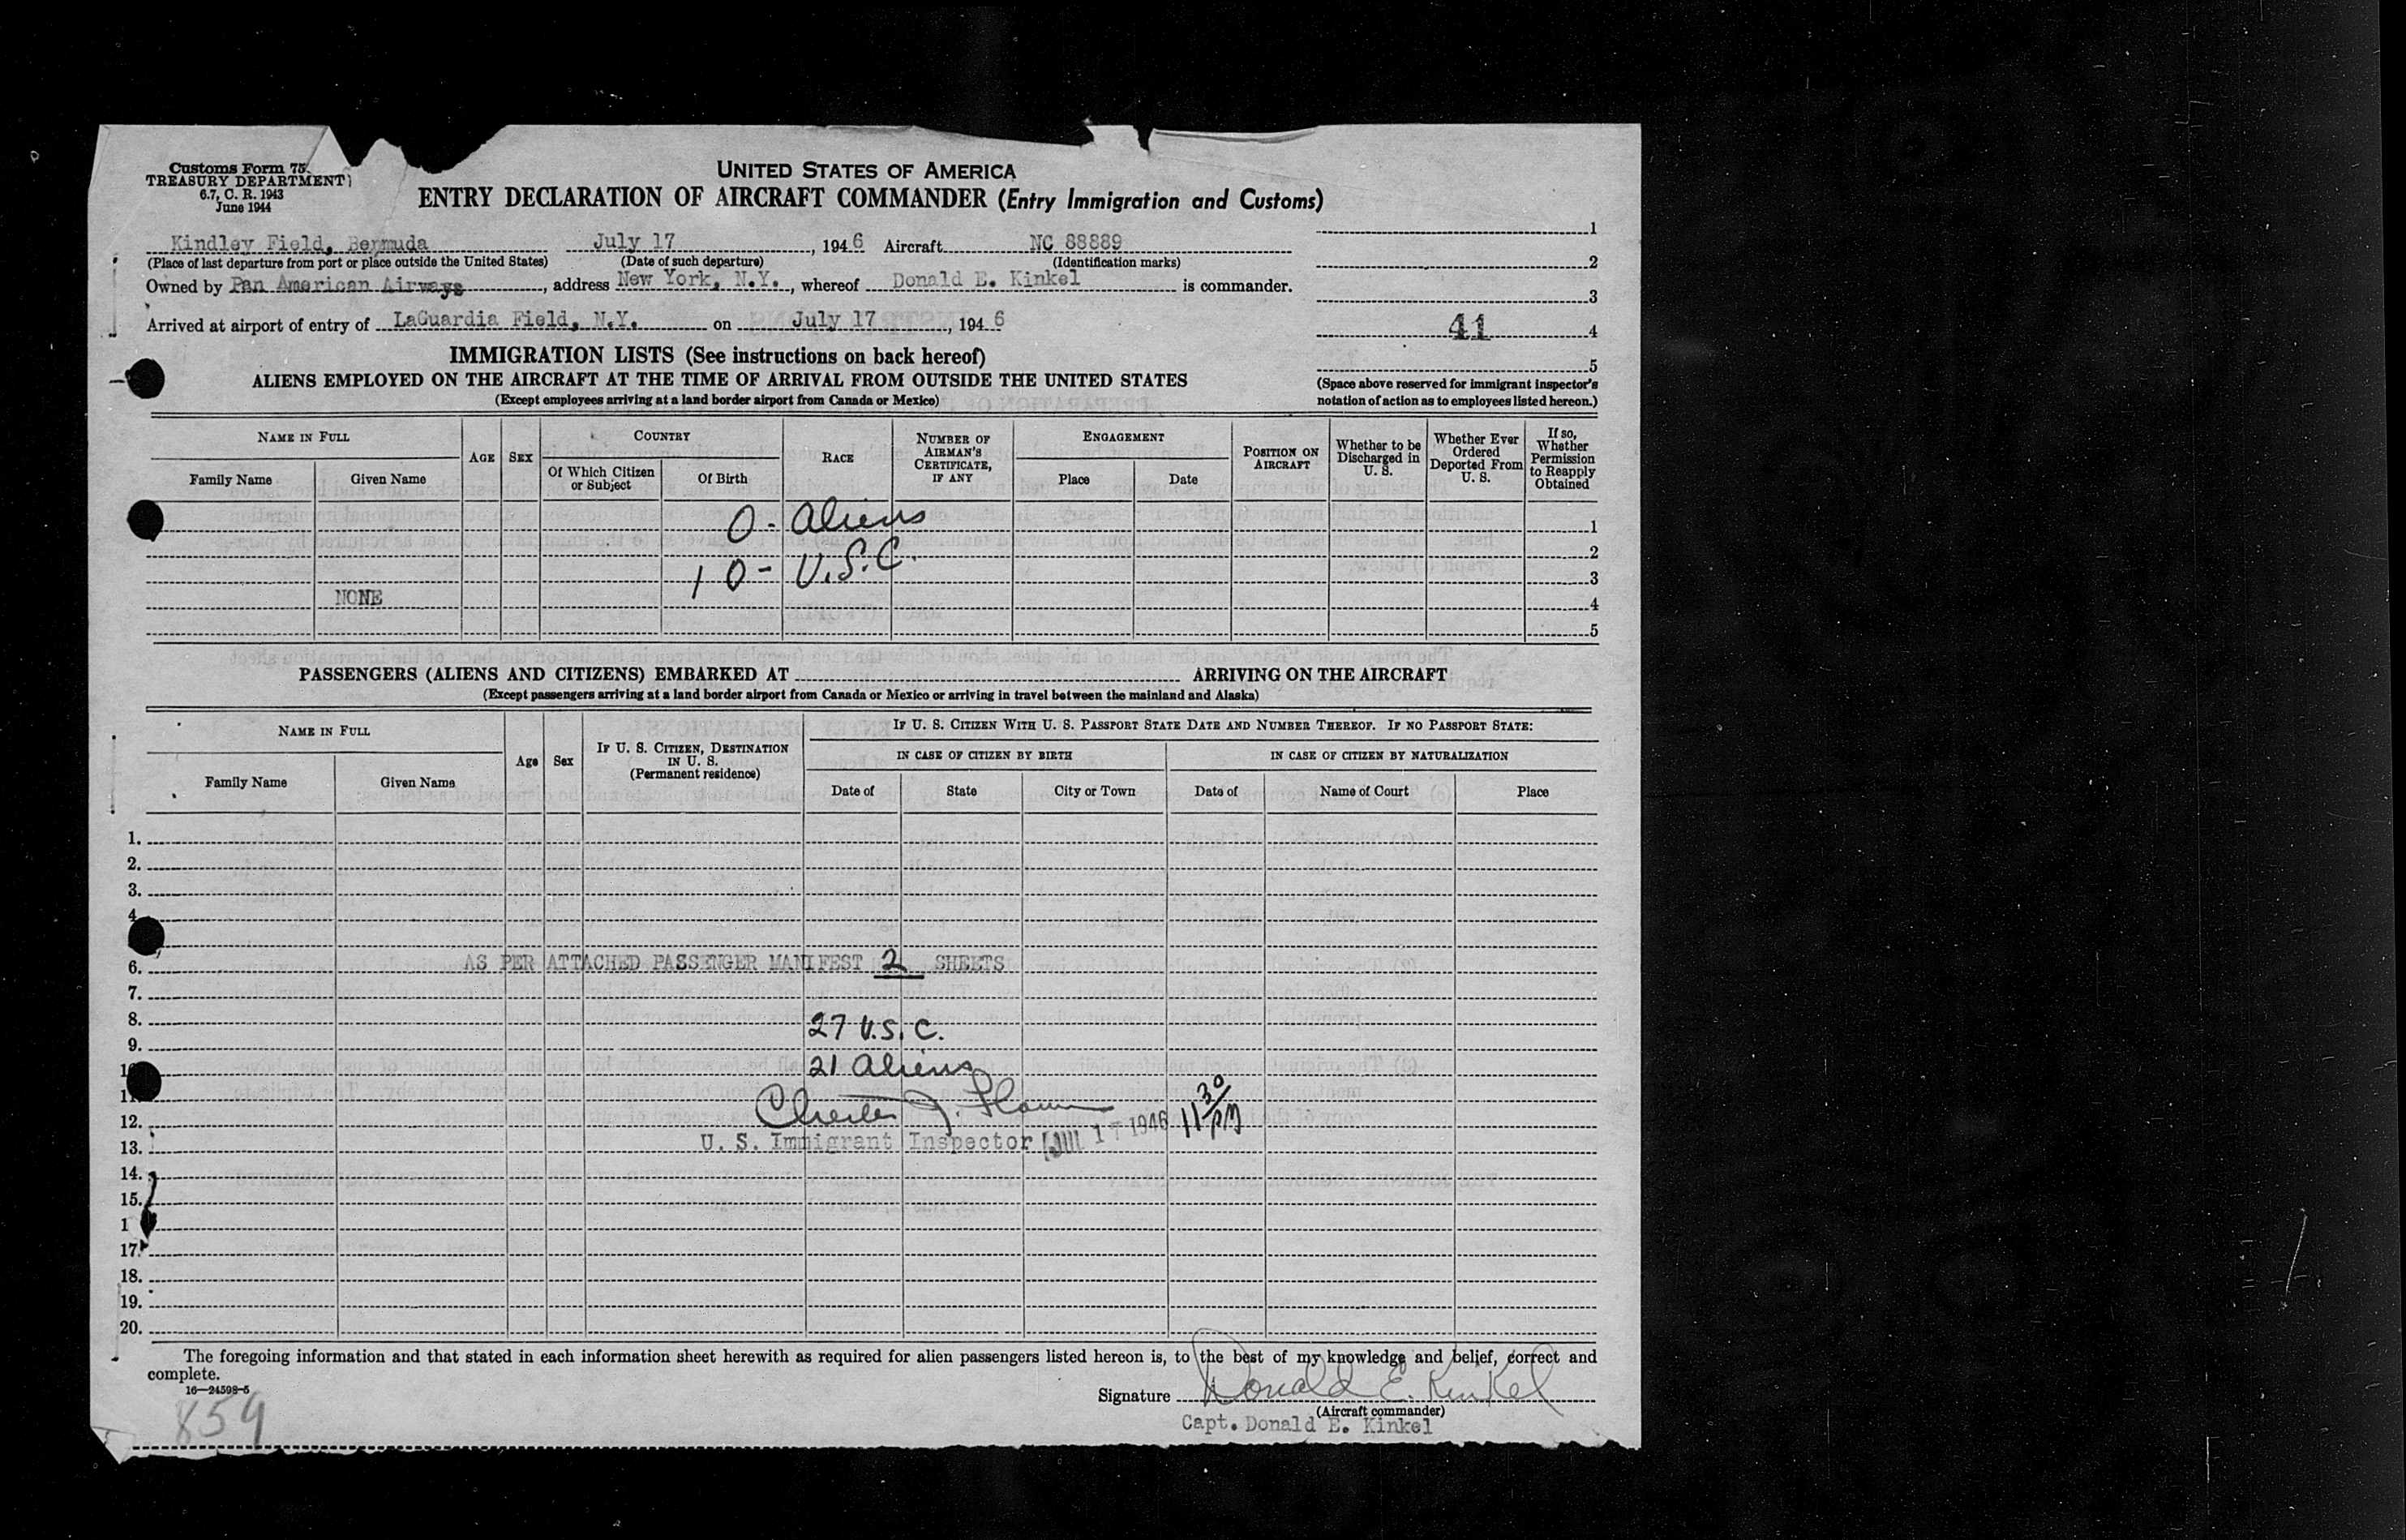 Customs Form 75
TREASURY DEPARTMENT
6.7, C. R. 1943
June 1944
UNITED STATES OF AMERICA
ENTRY DECLARATION OF AIRCRAFT COMMANDER (Entry Immigration and Customs)
Kindley Field, Bermuda July 17, 1946 Aircraft NC 88889
(Place of last departure from port or place outside the United States) (Date of such departure) (Identification marks)
Owned by Pan American Airways, address New York, N.Y., whereof Donald E. Kinkel is commander.
Arrived at airport of entry of LaGuardia Field, N.Y. on July 17, 1946
1
2
3
41 4
5
(Space above reserved for immigrant inspector's
notation of action as to employees listed hereon.)
IMMIGRATION LISTS (See instructions on back hereof)
ALIENS EMPLOYED ON THE AIRCRAFT AT THE TIME OF ARRIVAL FROM OUTSIDE THE UNITED STATES
(Except employees arriving at a land border airport from Canada or Mexico)
NAME IN FULL
Family Name Given Name
AGE
SEX
COUNTRY
Of Which Citizen or Subject
Of Birth
RACE
NUMBER OF AIRMAN'S CERTIFICATE, IF ANY
ENGAGEMENT
Place Date
POSITION ON AIRCRAFT
Whether to be Discharged in U. S.
Whether Ever Ordered Deported From U. S.
If so, Whether Permission to Reapply Obtained
0 - Aliens 1
2
10 - U.S.C. 3
NONE 4
5
PASSENGERS (ALIENS AND CITIZENS) EMBARKED AT ARRIVING ON THE AIRCRAFT
(Except passengers arriving at a land border airport from Canada or Mexico or arriving in travel between the mainland and Alaska)
NAME IN FULL
Family Name Given Name
Age
Sex
IF U. S. CITIZEN, DESTINATION IN U. S.
(Permanent residence)
IF U. S. CITIZEN WITH U. S. PASSPORT STATE DATE AND NUMBER THEREOF. IF NO PASSPORT STATE:
IN CASE OF CITIZEN BY BIRTH IN CASE OF CITIZEN BY NATURALIZATION
Date of State City or Town Date of Name of Court Place
1.
2.
3.
4
6. AS PER ATTACHED PASSENGER MANIFEST 2 SHEETS
7.
8. 27 U.S.C.
9.
1 21 Aliens
11
12. Chester J.
13. U. S. Immigrant Inspector JUL 17 1946 11 30 PM
14.
15.
1
17
18.
19.
20.
The foregoing information and that stated in each information sheet herewith as required for alien passengers listed hereon is, to the best of my knowledge and belief, correct and
complete.
16—24598-5
Signature Donald E. Kinkel
(Aircraft commander)
Capt. Donald E. Kinkel
859